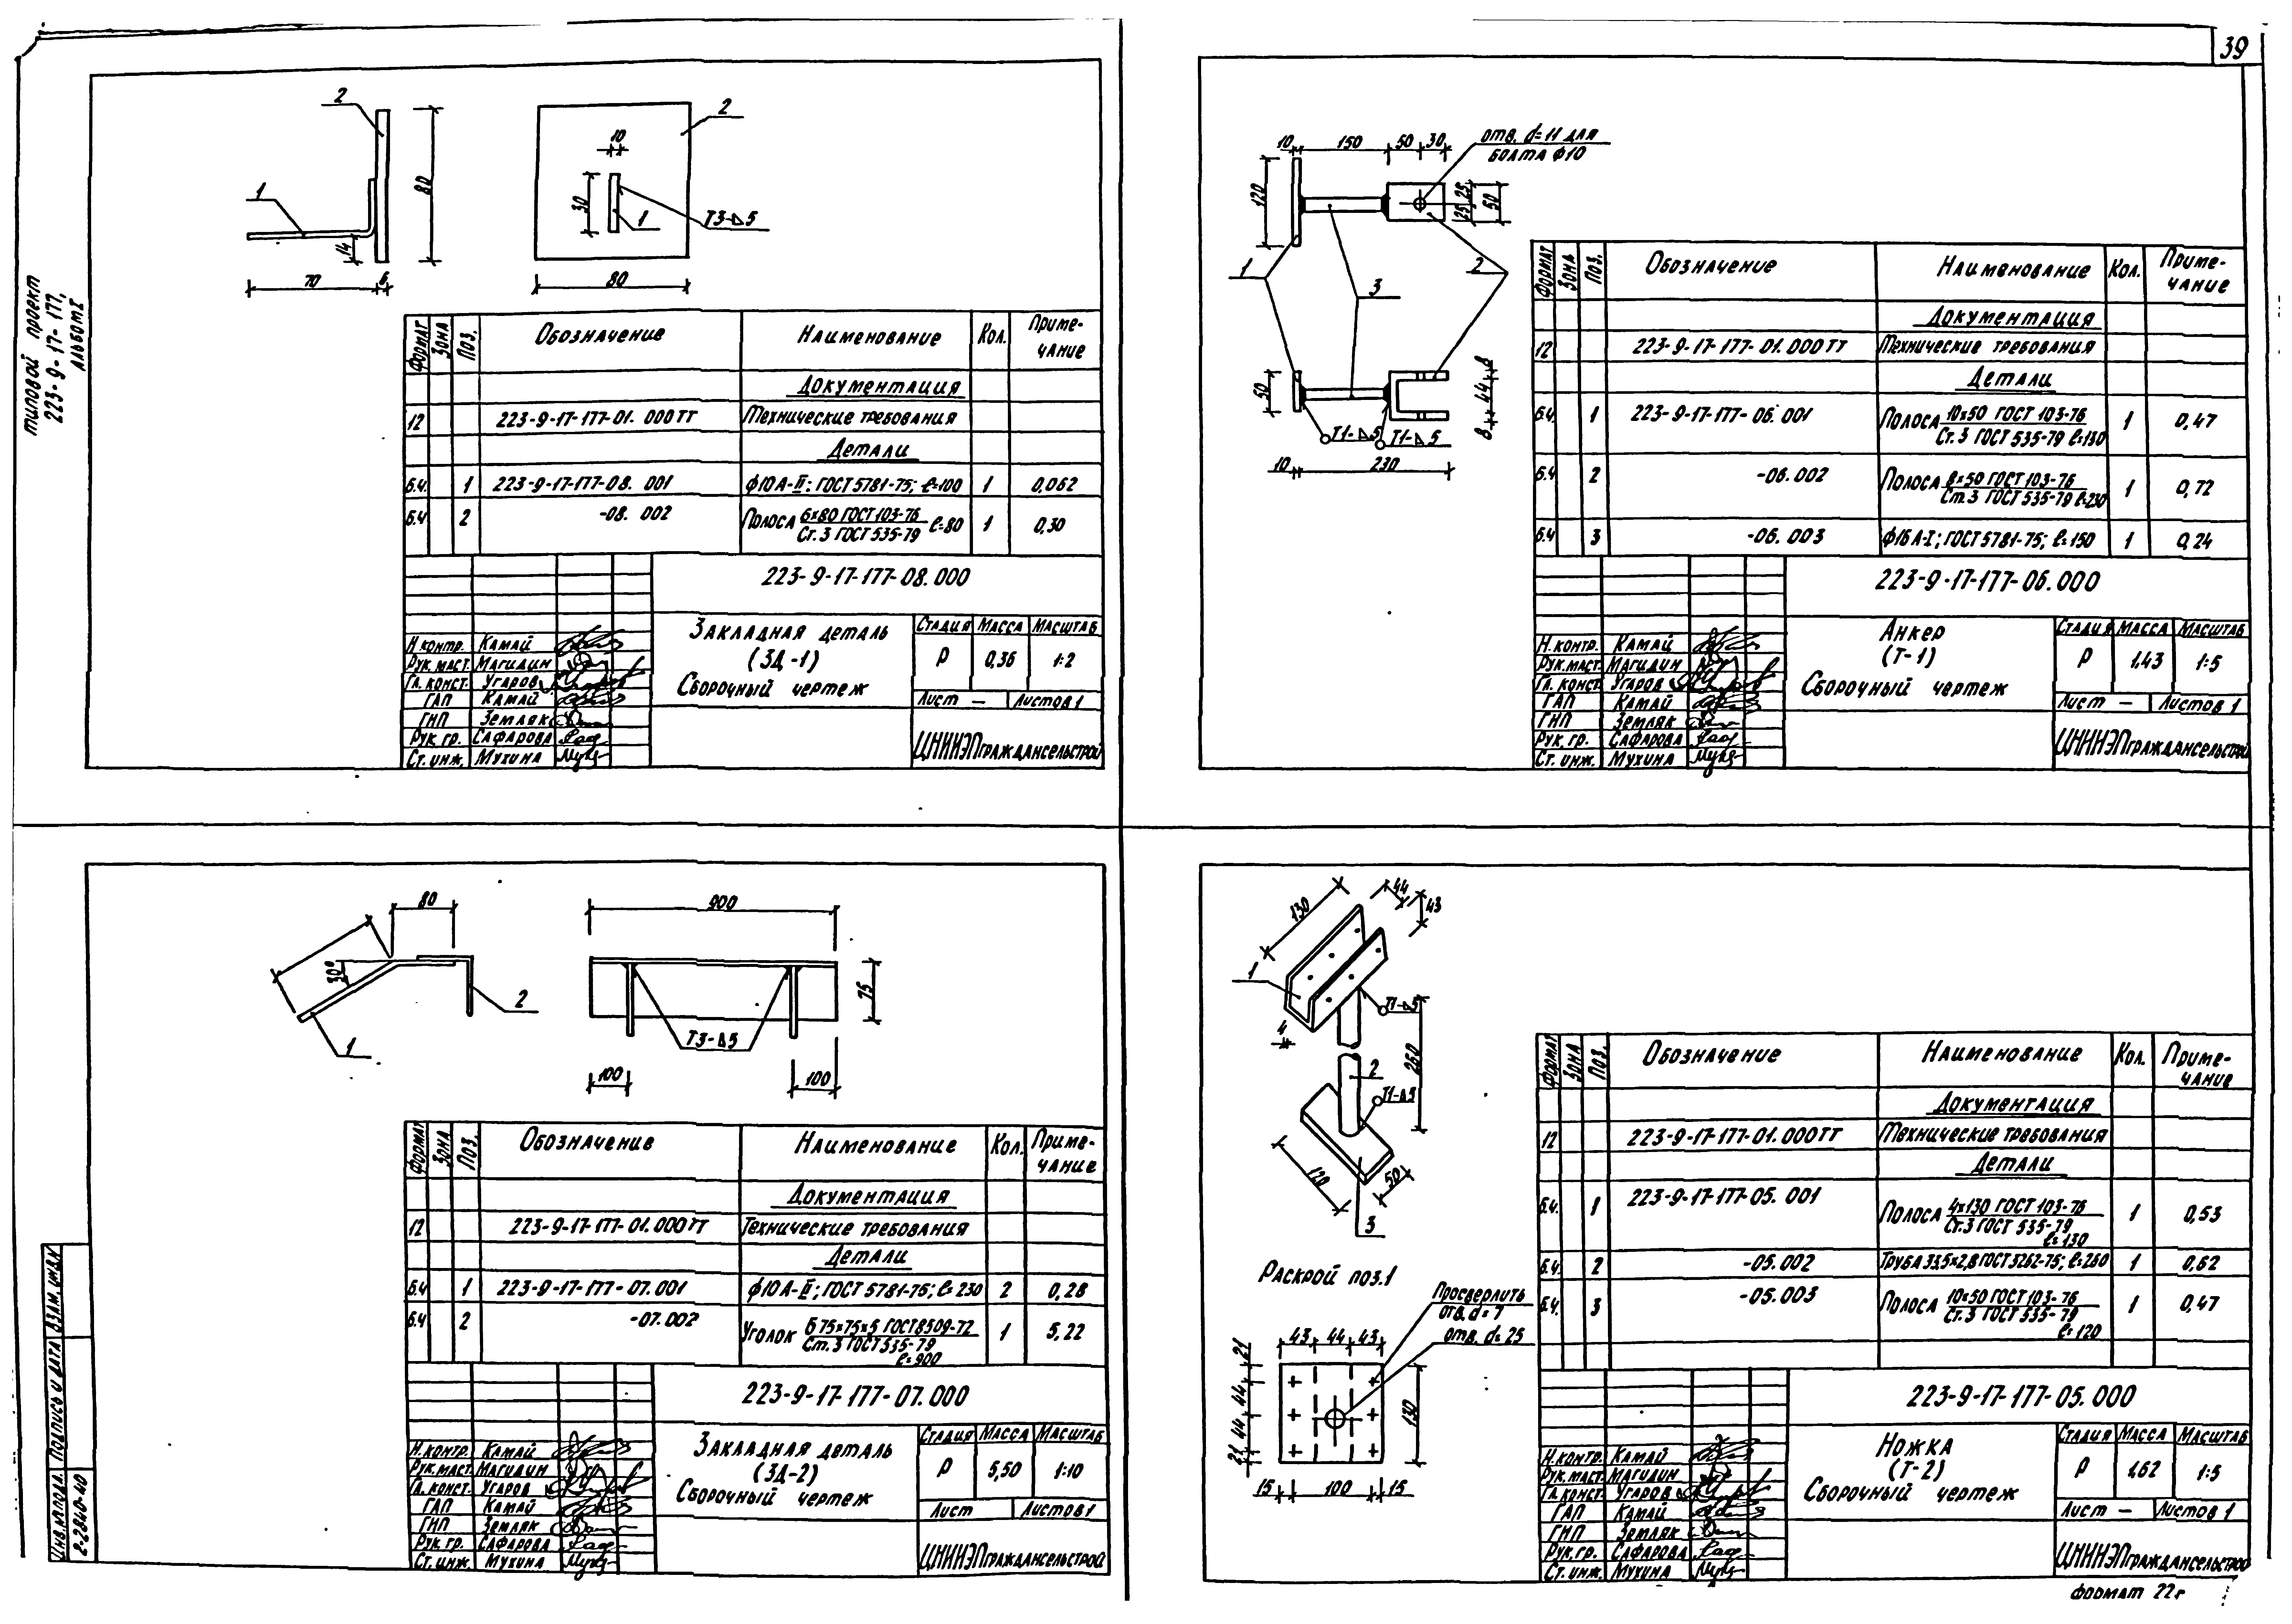 39
типовой проект
223-9-17-177,
альбом I
2
1
80
14
70
6
2
10
30
1
Т3-⊿5
80
Формат
Зона
Поз.
Обозначение
Наименование
Кол.
Приме-
чание
Документация
12 223-9-17-177-01.000ТТ Технические требования
Детали
Б.Ч. 1 223-9-17-177-08.001 ф10А-II; ГОСТ 5781-75; ℓ=100 1 0,062
Б.Ч 2 -08.002 Полоса 6×80 ГОСТ 103-76 ℓ=80 1 0,30
Ст.3 ГОСТ 535-79
223-9-17-177-08.000
Закладная деталь
(ЗД-1)
Сборочный чертеж
Стадия Масса Масштаб
Р 0,36 1:2
Лист — Листов 1
ЦНИИЭПграждансельстрой
Н.контр. Камай
Рук.маст. Магидин
Гл.конст. Угаров
ГАП Камай
ГИП Земляк
Рук.гр. Сафарова
Ст.инж. Мухина
10 150 50 30
отв. d=11 для
болта ф10
120
25 25
50
1
3
2
50
8 44 8
Т1-⊿5
Т1-⊿5
10 230
Формат
Зона
Поз.
Обозначение
Наименование
Кол.
Приме-
чание
Документация
12 223-9-17-177-01.000ТТ Технические требования
Детали
Б.Ч. 1 223-9-17-177-06.001 Полоса 10×50 ГОСТ 103-76 1 0,47
Ст.3 ГОСТ 535-79 ℓ=130
Б.Ч 2 -06.002 Полоса 8×50 ГОСТ 103-76 1 0,72
Ст.3 ГОСТ 535-79 ℓ=230
Б.Ч 3 -06.003 ф16А-I; ГОСТ 5781-75; ℓ=150 1 0,24
223-9-17-177-06.000
Анкер
(Т-1)
Сборочный чертеж
Стадия Масса Масштаб
Р 1,43 1:5
Лист — Листов 1
ЦНИИЭПграждансельстрой
Н.контр. Камай
Рук.маст. Магидин
Гл.конст. Угаров
ГАП Камай
ГИП Земляк
Рук.гр. Сафарова
Ст.инж. Мухина
80
30°
1
2
900
75
Т3-⊿5
100
100
Формат
Зона
Поз.
Обозначение
Наименование
Кол.
Приме-
чание
Документация
12 223-9-17-177-01.000ТТ Технические требования
Детали
Б.Ч 1 223-9-17-177-07.001 ф10А-II; ГОСТ 5781-75; ℓ=230 2 0,28
Б.Ч 2 -07.002 Уголок Б 75×75×5 ГОСТ 8509-72 1 5,22
Ст.3 ГОСТ 535-79
ℓ=900
223-9-17-177-07.000
Закладная деталь
(ЗД-2)
Сборочный чертеж
Стадия Масса Масштаб
Р 5,50 1:10
Лист Листов 1
ЦНИИЭПграждансельстрой
Н.контр. Камай
Рук.маст. Магидин
Гл.конст. Угаров
ГАП Камай
ГИП Земляк
Рук.гр. Сафарова
Ст.инж. Мухина
Инв.№ подл. Подпись и дата Взам. инв.№
2-2840-40
130
44
43
1
Т1-⊿5
4
260
2
Т1-⊿5
120
50
3
Раскрой поз.1
Просверлить
отв. d=7
отв. d=25
43 44 43
21
44
44
21
130
15 100 15
Формат
Зона
Поз.
Обозначение
Наименование
Кол.
Приме-
чание
Документация
12 223-9-17-177-01.000ТТ Технические требования
Детали
Б.Ч. 1 223-9-17-177-05.001 Полоса 4×130 ГОСТ 103-76 1 0,53
Ст.3 ГОСТ 535-79
ℓ=130
Б.Ч. 2 -05.002 Труба 33,5×2,8 ГОСТ 3262-75; ℓ=260 1 0,62
Б.Ч. 3 -05.003 Полоса 10×50 ГОСТ 103-76 1 0,47
Ст.3 ГОСТ 535-79
ℓ=120
223-9-17-177-05.000
Ножка
(Т-2)
Сборочный чертеж
Стадия Масса Масштаб
Р 1,62 1:5
Лист — Листов 1
ЦНИИЭПграждансельстрой
Н.контр. Камай
Рук.маст. Магидин
Гл.конст. Угаров
ГАП Камай
ГИП Земляк
Рук.гр. Сафарова
Ст.инж. Мухина
формат 22г